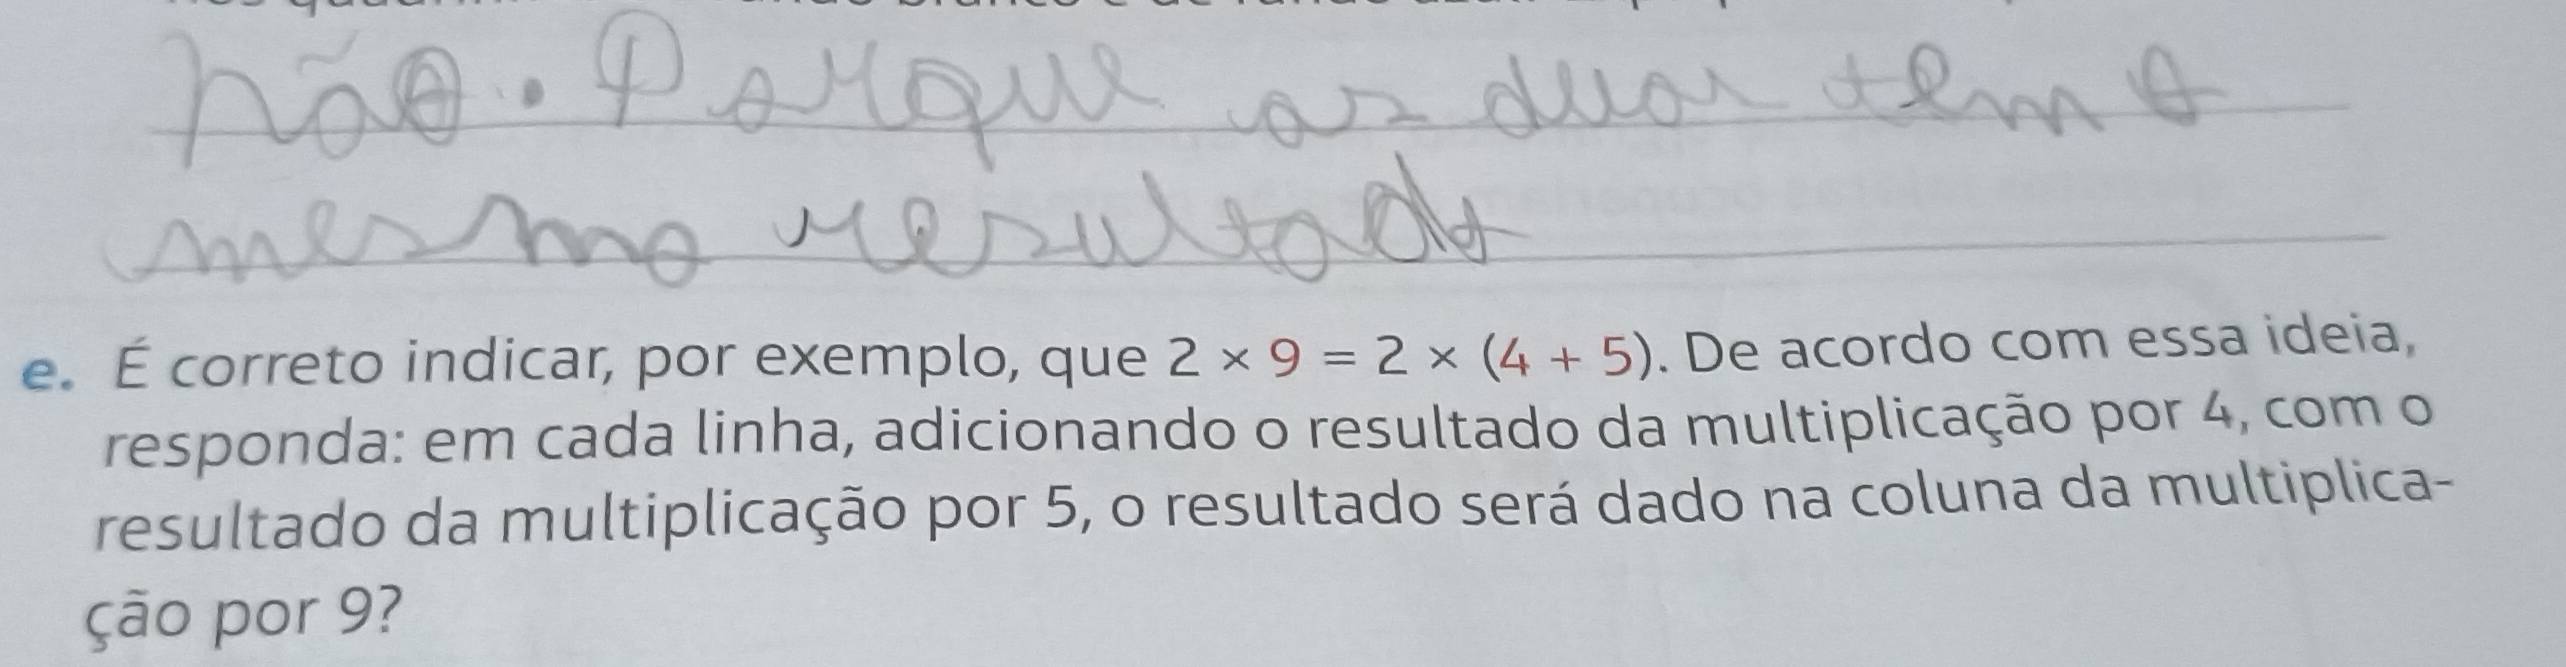 não. Porque as duas tem o
mesmo resultado
e. É correto indicar, por exemplo, que 2 × 9 = 2 × (4 + 5). De acordo com essa ideia,
responda: em cada linha, adicionando o resultado da multiplicação por 4, com o
resultado da multiplicação por 5, o resultado será dado na coluna da multiplica-
ção por 9?